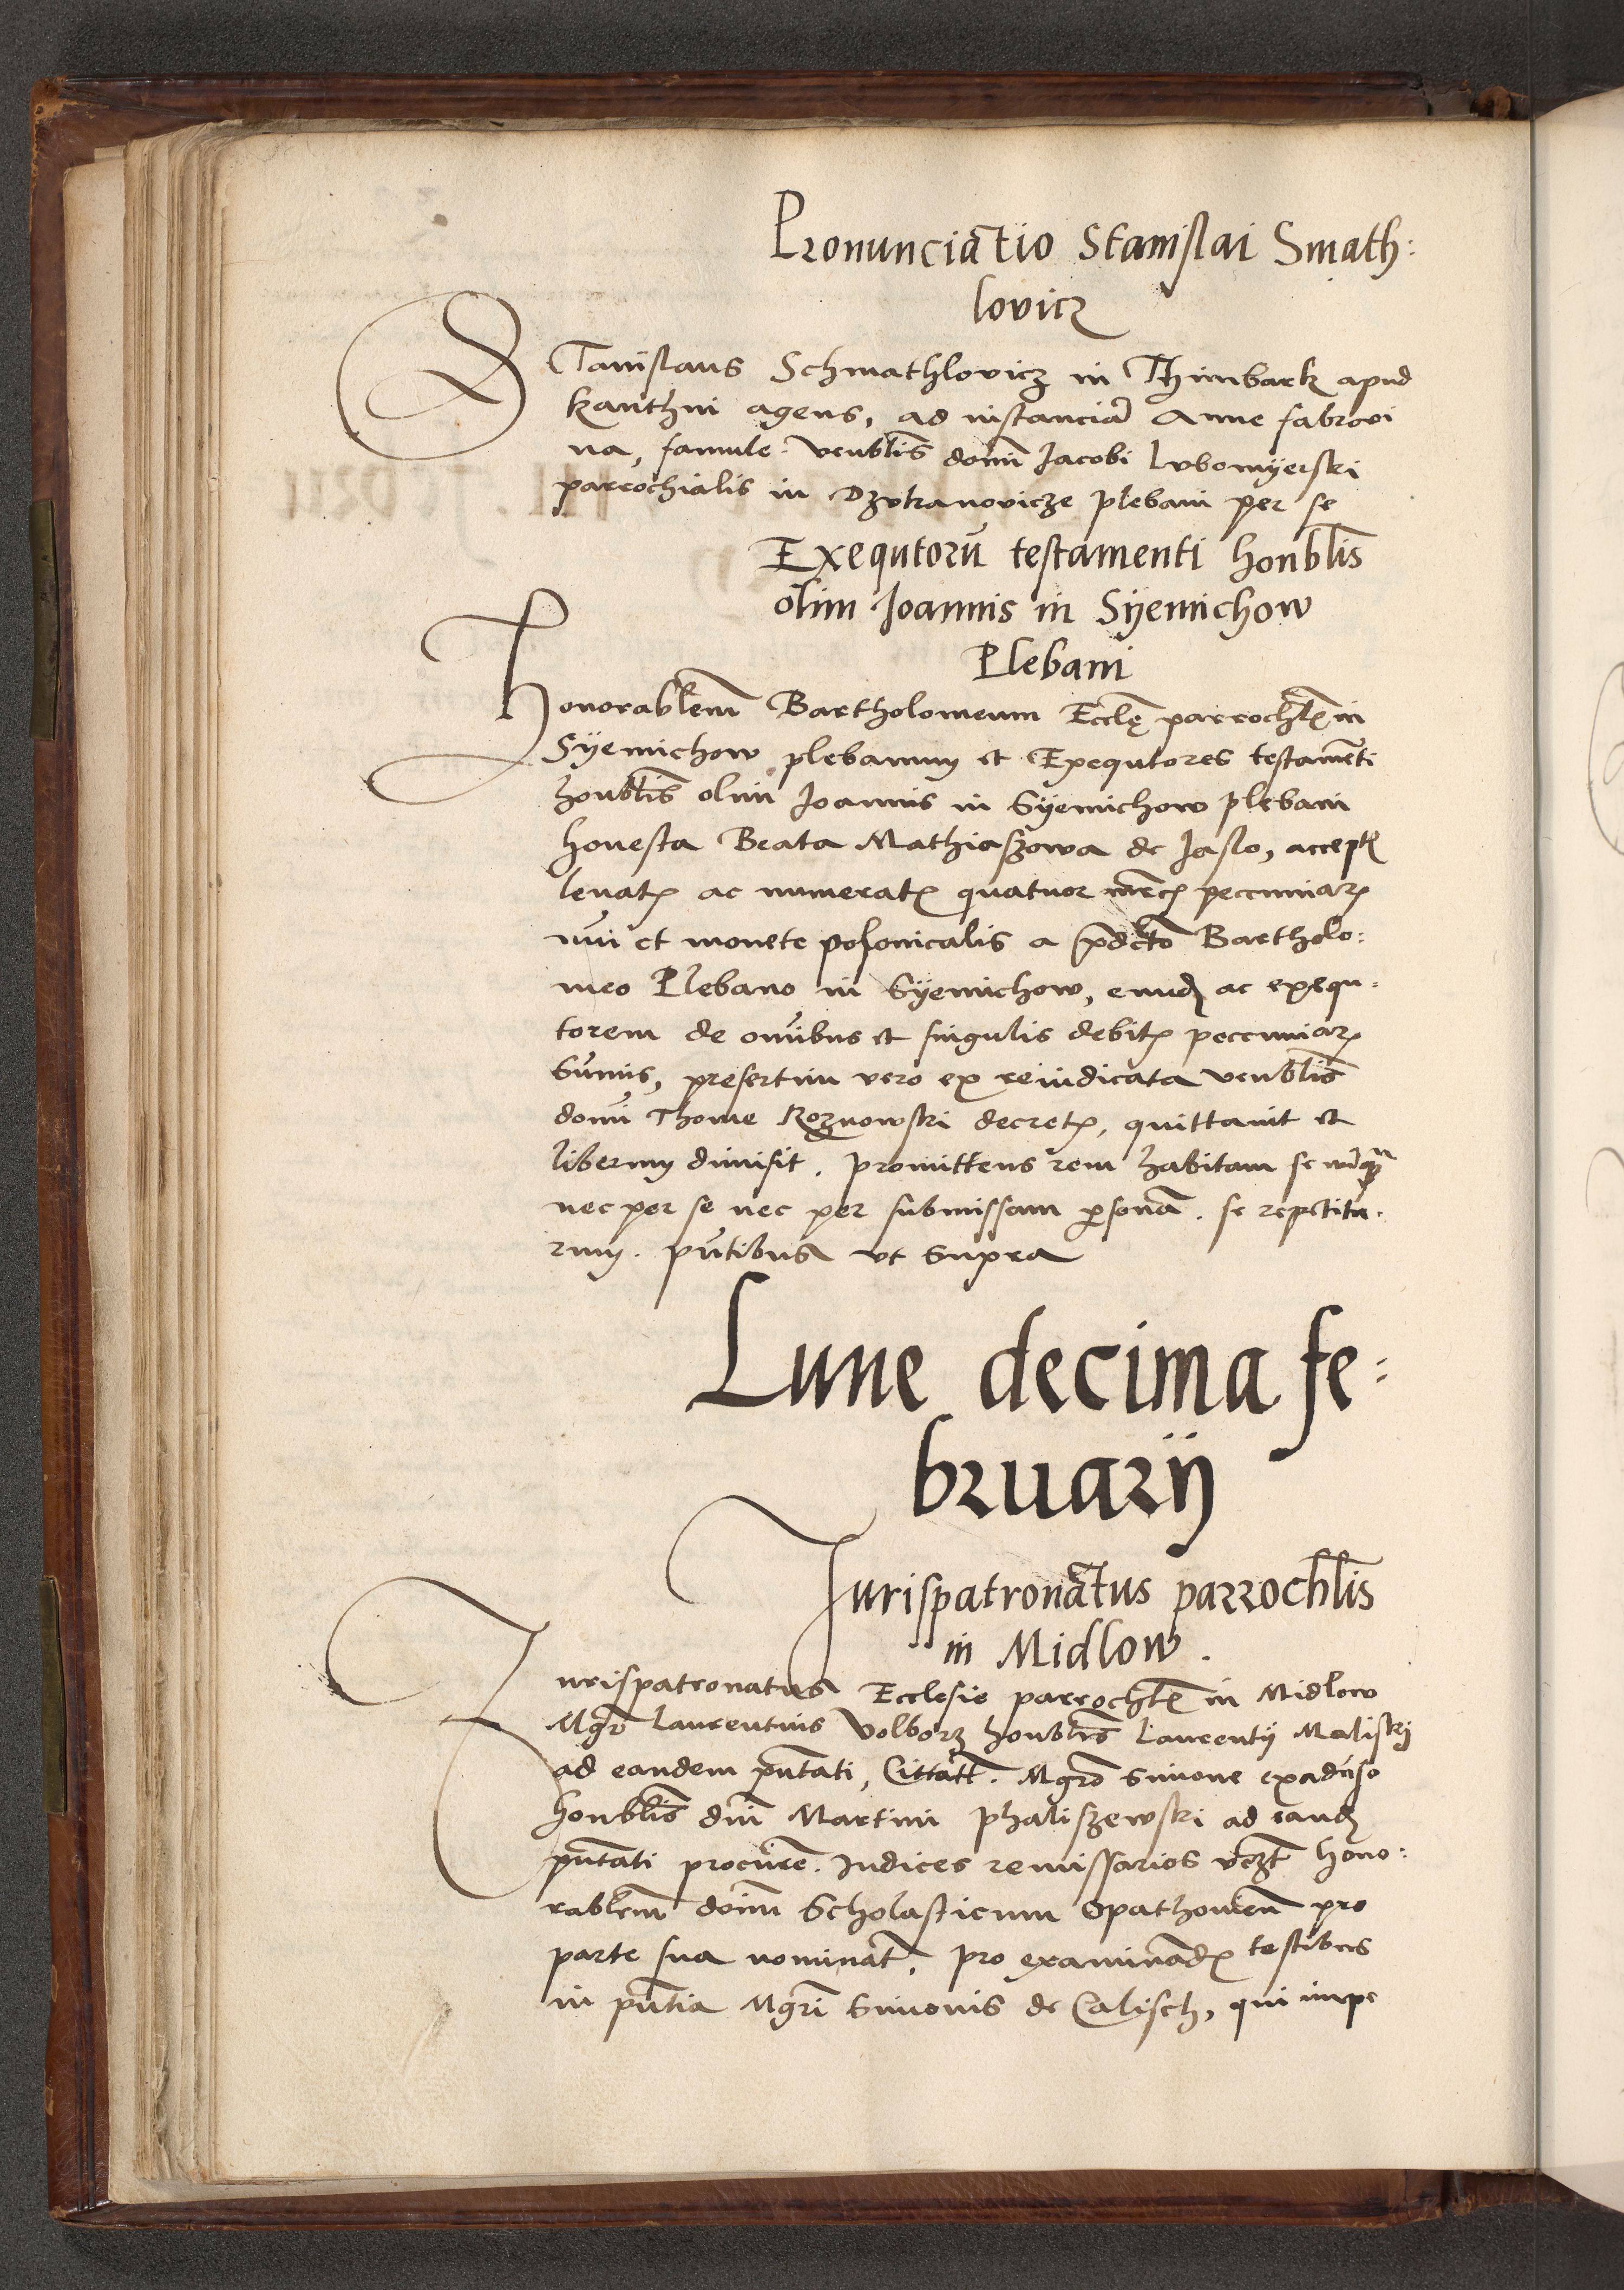 Pronunciatio Stanislai Smath:
lovicz
STanislaus Schmathlovicz in Thimbark apud
kanthni agens, ad instanciã Anne fabrovi
na, famule venblis domi Jacobi Lvbomÿerski
parrochialis in Dzvtranovicze plebani per se
Exequtorũ testamenti honblis
olim Joannis in Sÿemichow
Plebani
Honorablem Bartholomeum Ecclę parrochl in
Sÿemichow plebanum et Exequtores testamenti
honblis olim Joannis in Sÿemichow plebani
honesta Beata Mathiaszowa de Jaslo, accept
levat ac numerat quatuor mrc pecuniar
nui et monete polonicalis a pdcto Bartholo:
meo Plebano in Sÿemichow, eund ac exequ:
torem de omibus et singulis debit pecuniar
Sumis, presertim vero ex reiudicata venblis
domi Thome Roznowski decret, quittavit et
liberum dimisit. promittens rem habitam se nunq
nec per se nec per submissam psonã. se repetitu:
rum. pntibus vt supra
Lune decima fe:
bruarij
Jurispatronatus parrochlis
in Midlow.
Jurispatronatus Ecclesie parrochl in Midlow
Mgro Laurentius Volborz honblis Laurentij Maliskj
ad eandem pntati, Cittatt. Mgro Simone exaduso
honblis dni Martini Phaliszewski ad eand
pntati procure. Judices remissarios vczt hono:
rablem domi Scholasticum Opathovien pro
parte sua nominat, pro examinand testibus
in pntia Mgri Simonis de Calisch, qui impe